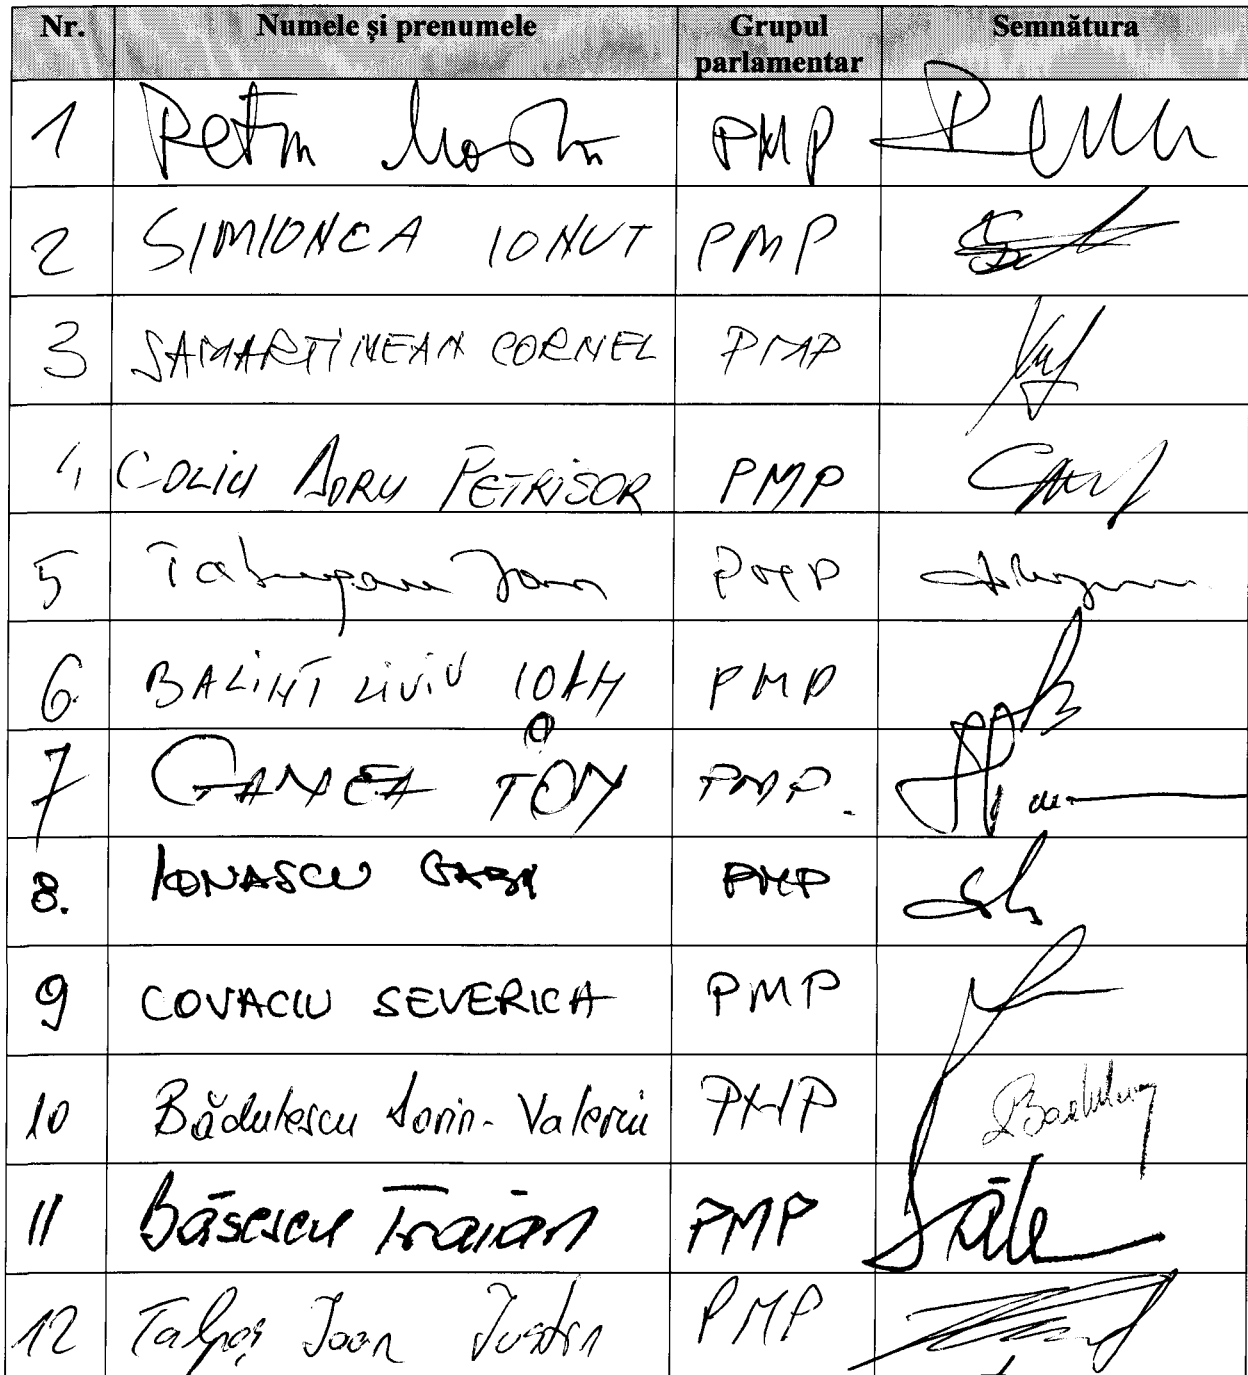 Nr. Numele și prenumele Grupul parlamentar Semnătura
1 Petru PMP
2 SIMIONCA IONUT PMP
3 SAMARTINEAN CORNEL PMP
4 COLIU DORU PETRISOR PMP
5 PMP
6. BALINT LIVIU IOAN PMP
7 GANEA ION PMP.
8. IONASCU GABI PMP
9 COVACIU SEVERICA PMP
10 Bădulescu Dorin-Valeriu PMP
11 Băsescu Traian PMP
12 Talpoș Ioan Iustin PMP